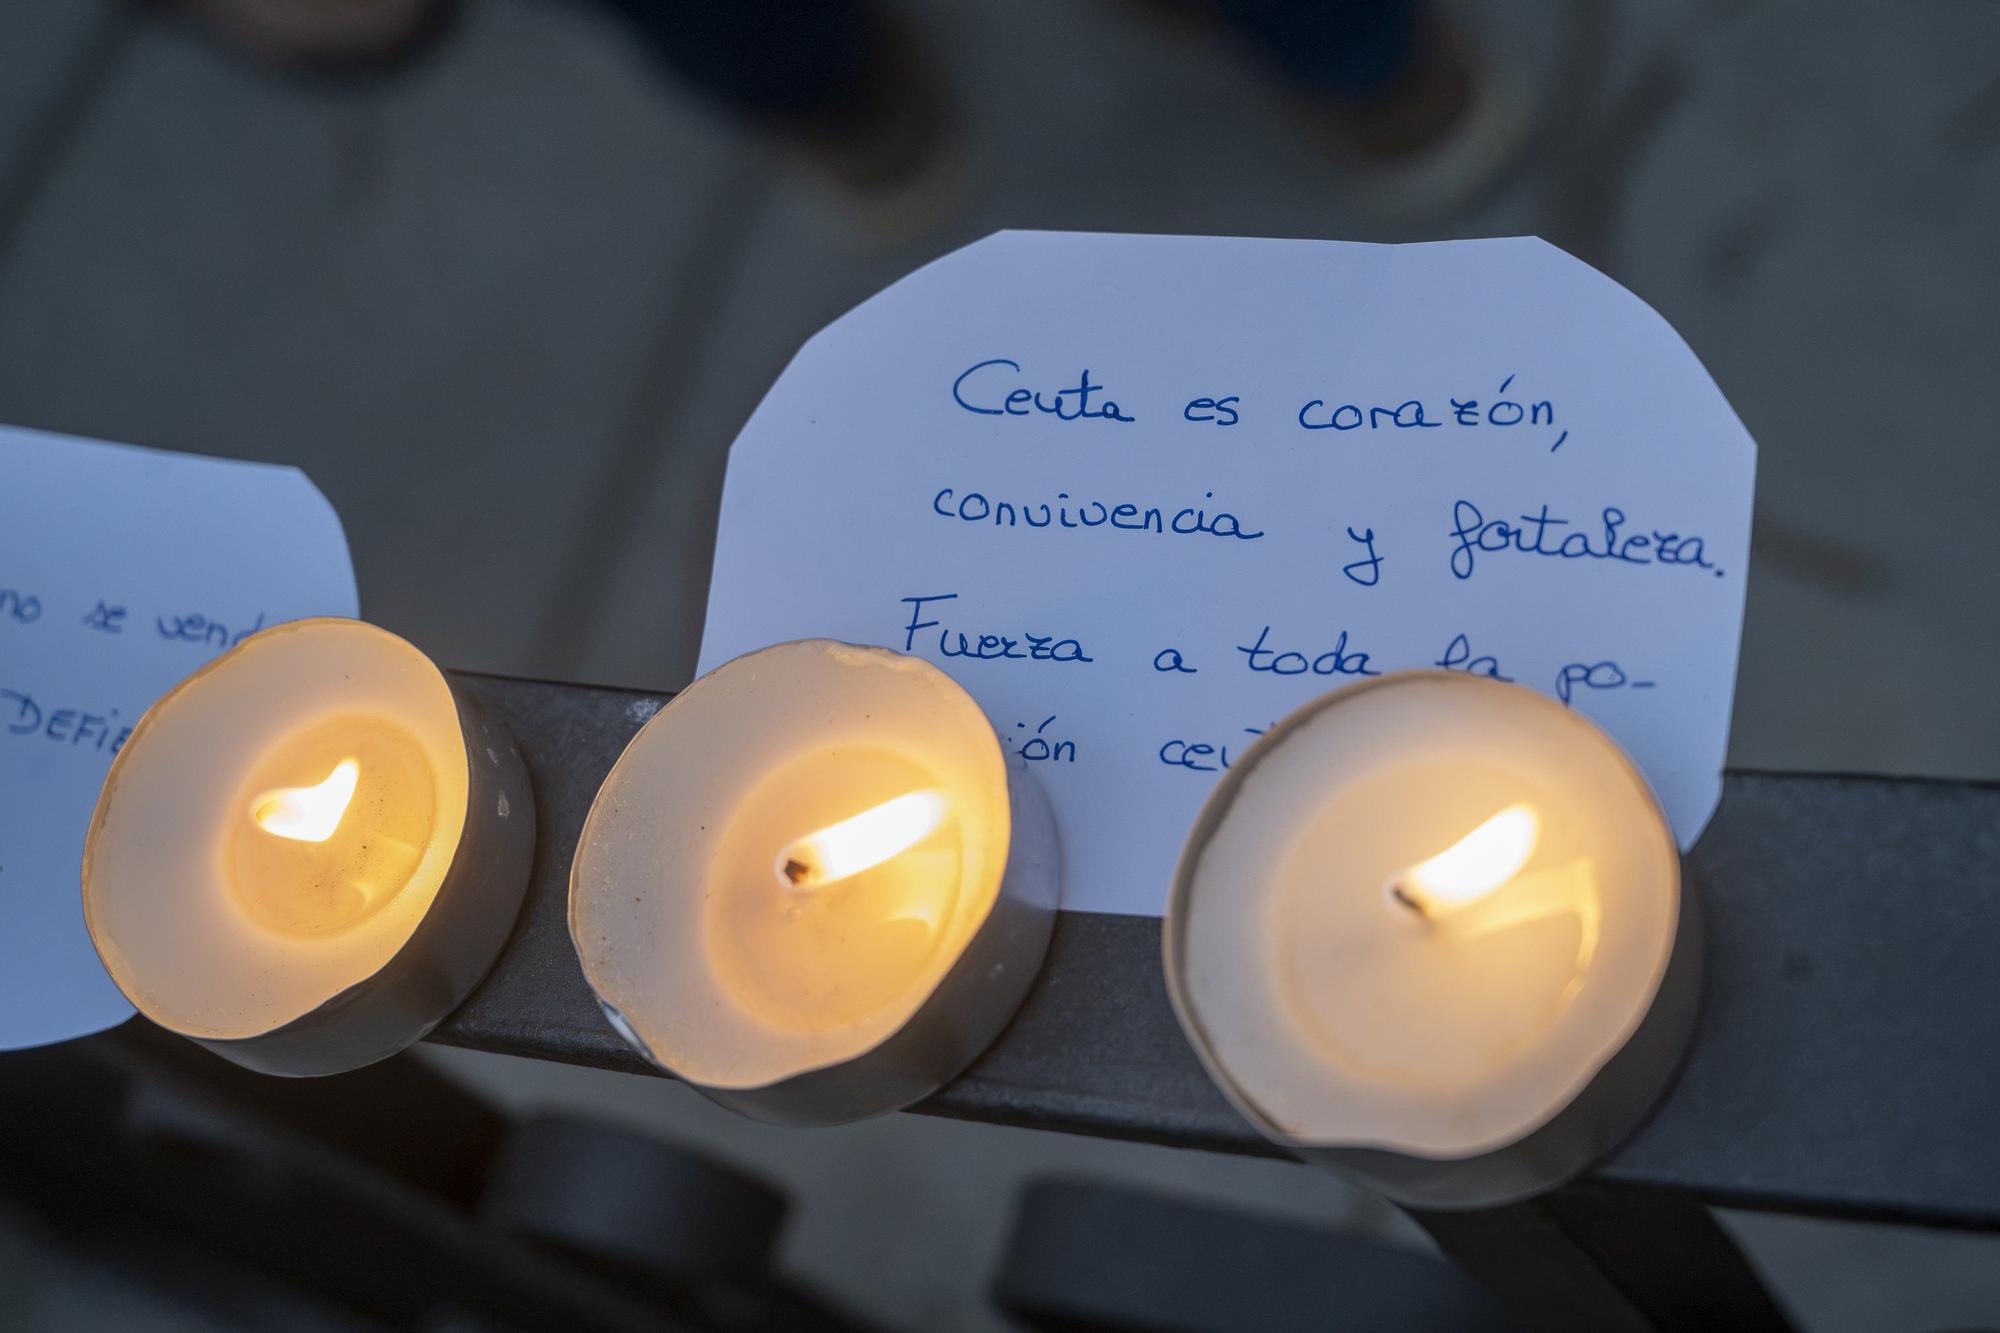 no se
DEFIE
Ceuta es corazón,
convivencia y fortaleza.
Fuerza a toda la po-
ión ceu